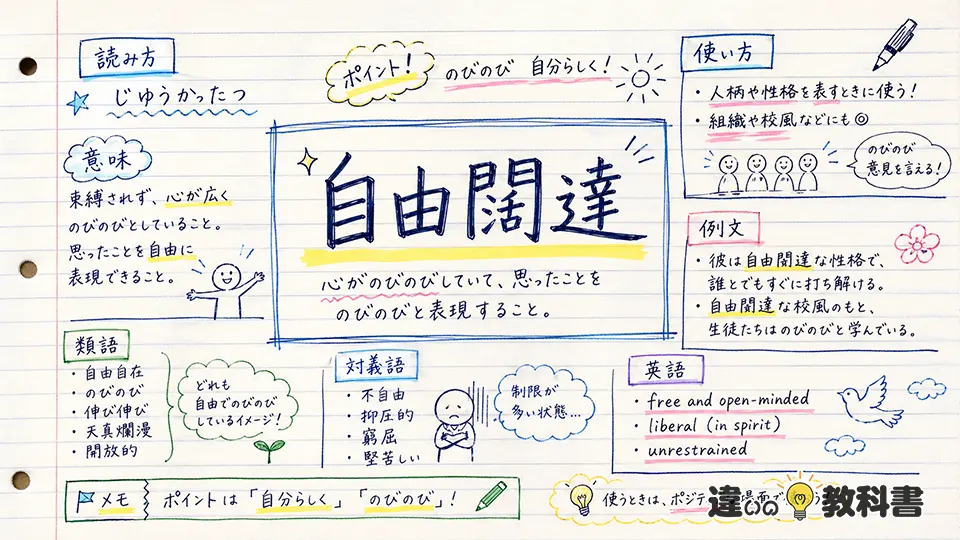 読み方
じゆうかったつ
ポイント!
のびのび 自分らしく!
使い方
・人柄や性格を表すときに使う!
・組織や校風などにも◎
のびのび
意見を言える!
意味
束縛されず、心が広く
のびのびとしていること。
思ったことを自由に
表現できること。
自由闊達
心がのびのびしていて、思ったことを
のびのびと表現すること。
例文
・彼は自由闊達な性格で、
誰とでもすぐに打ち解ける。
・自由闊達な校風のもと、
生徒たちはのびのびと学んでいる。
類語
・自由自在
・のびのび
・伸び伸び
・天真爛漫
・開放的
どれも
自由でのびのび
しているイメージ!
対義語
・不自由
・抑圧的
・窮屈
・堅苦しい
制限が
多い状態…
英語
・free and open-minded
・liberal (in spirit)
・unrestrained
メモ
ポイントは「自分らしく」「のびのび」!
使うときは、ポジテ
違いの教科書